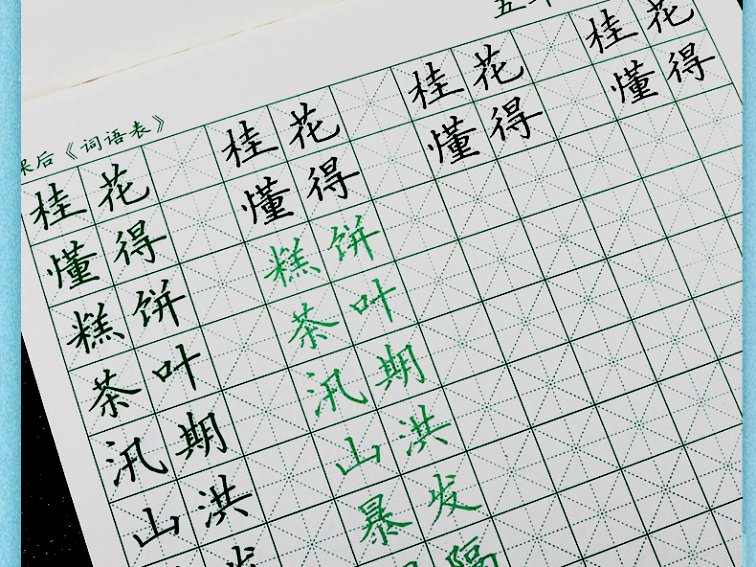 五
课后《词语表》
桂花 桂花 桂花 桂花
懂得 懂得 懂得 懂得
糕饼 糕饼
茶叶 茶叶
汛期 汛期
山洪 山洪
发 暴发
隔